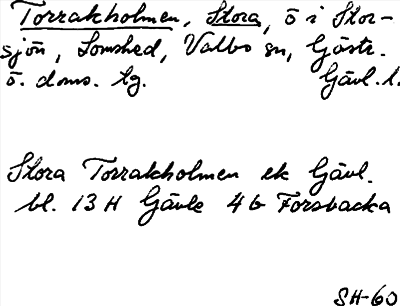 Torrakholmen, Stora, ö i Stor-
sjön, Lomshed, Valbo sn, Gästr.
ö. doms. tg. Gävl. l.
Stora Torrakholmen ek Gävl.
bl. 13 H Gävle 4 b Forsbacka
SH-60